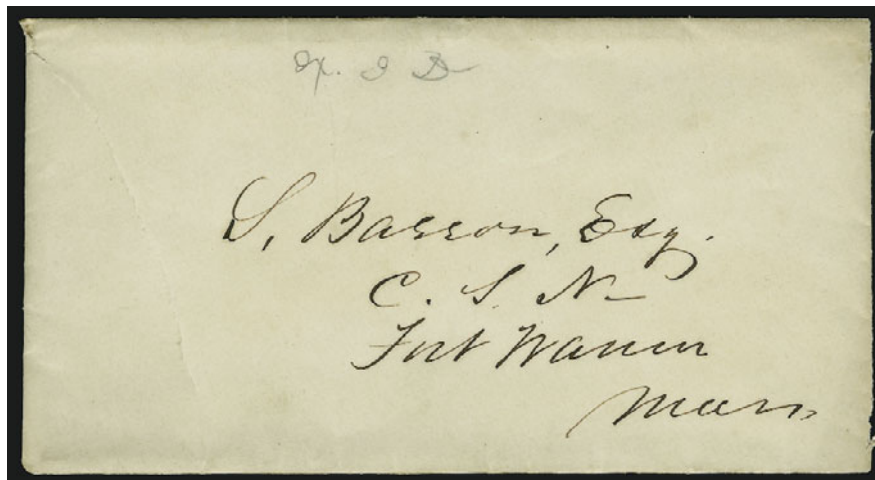 S. Barron, Esq.
C. S. N.
Fort Warren
Mass